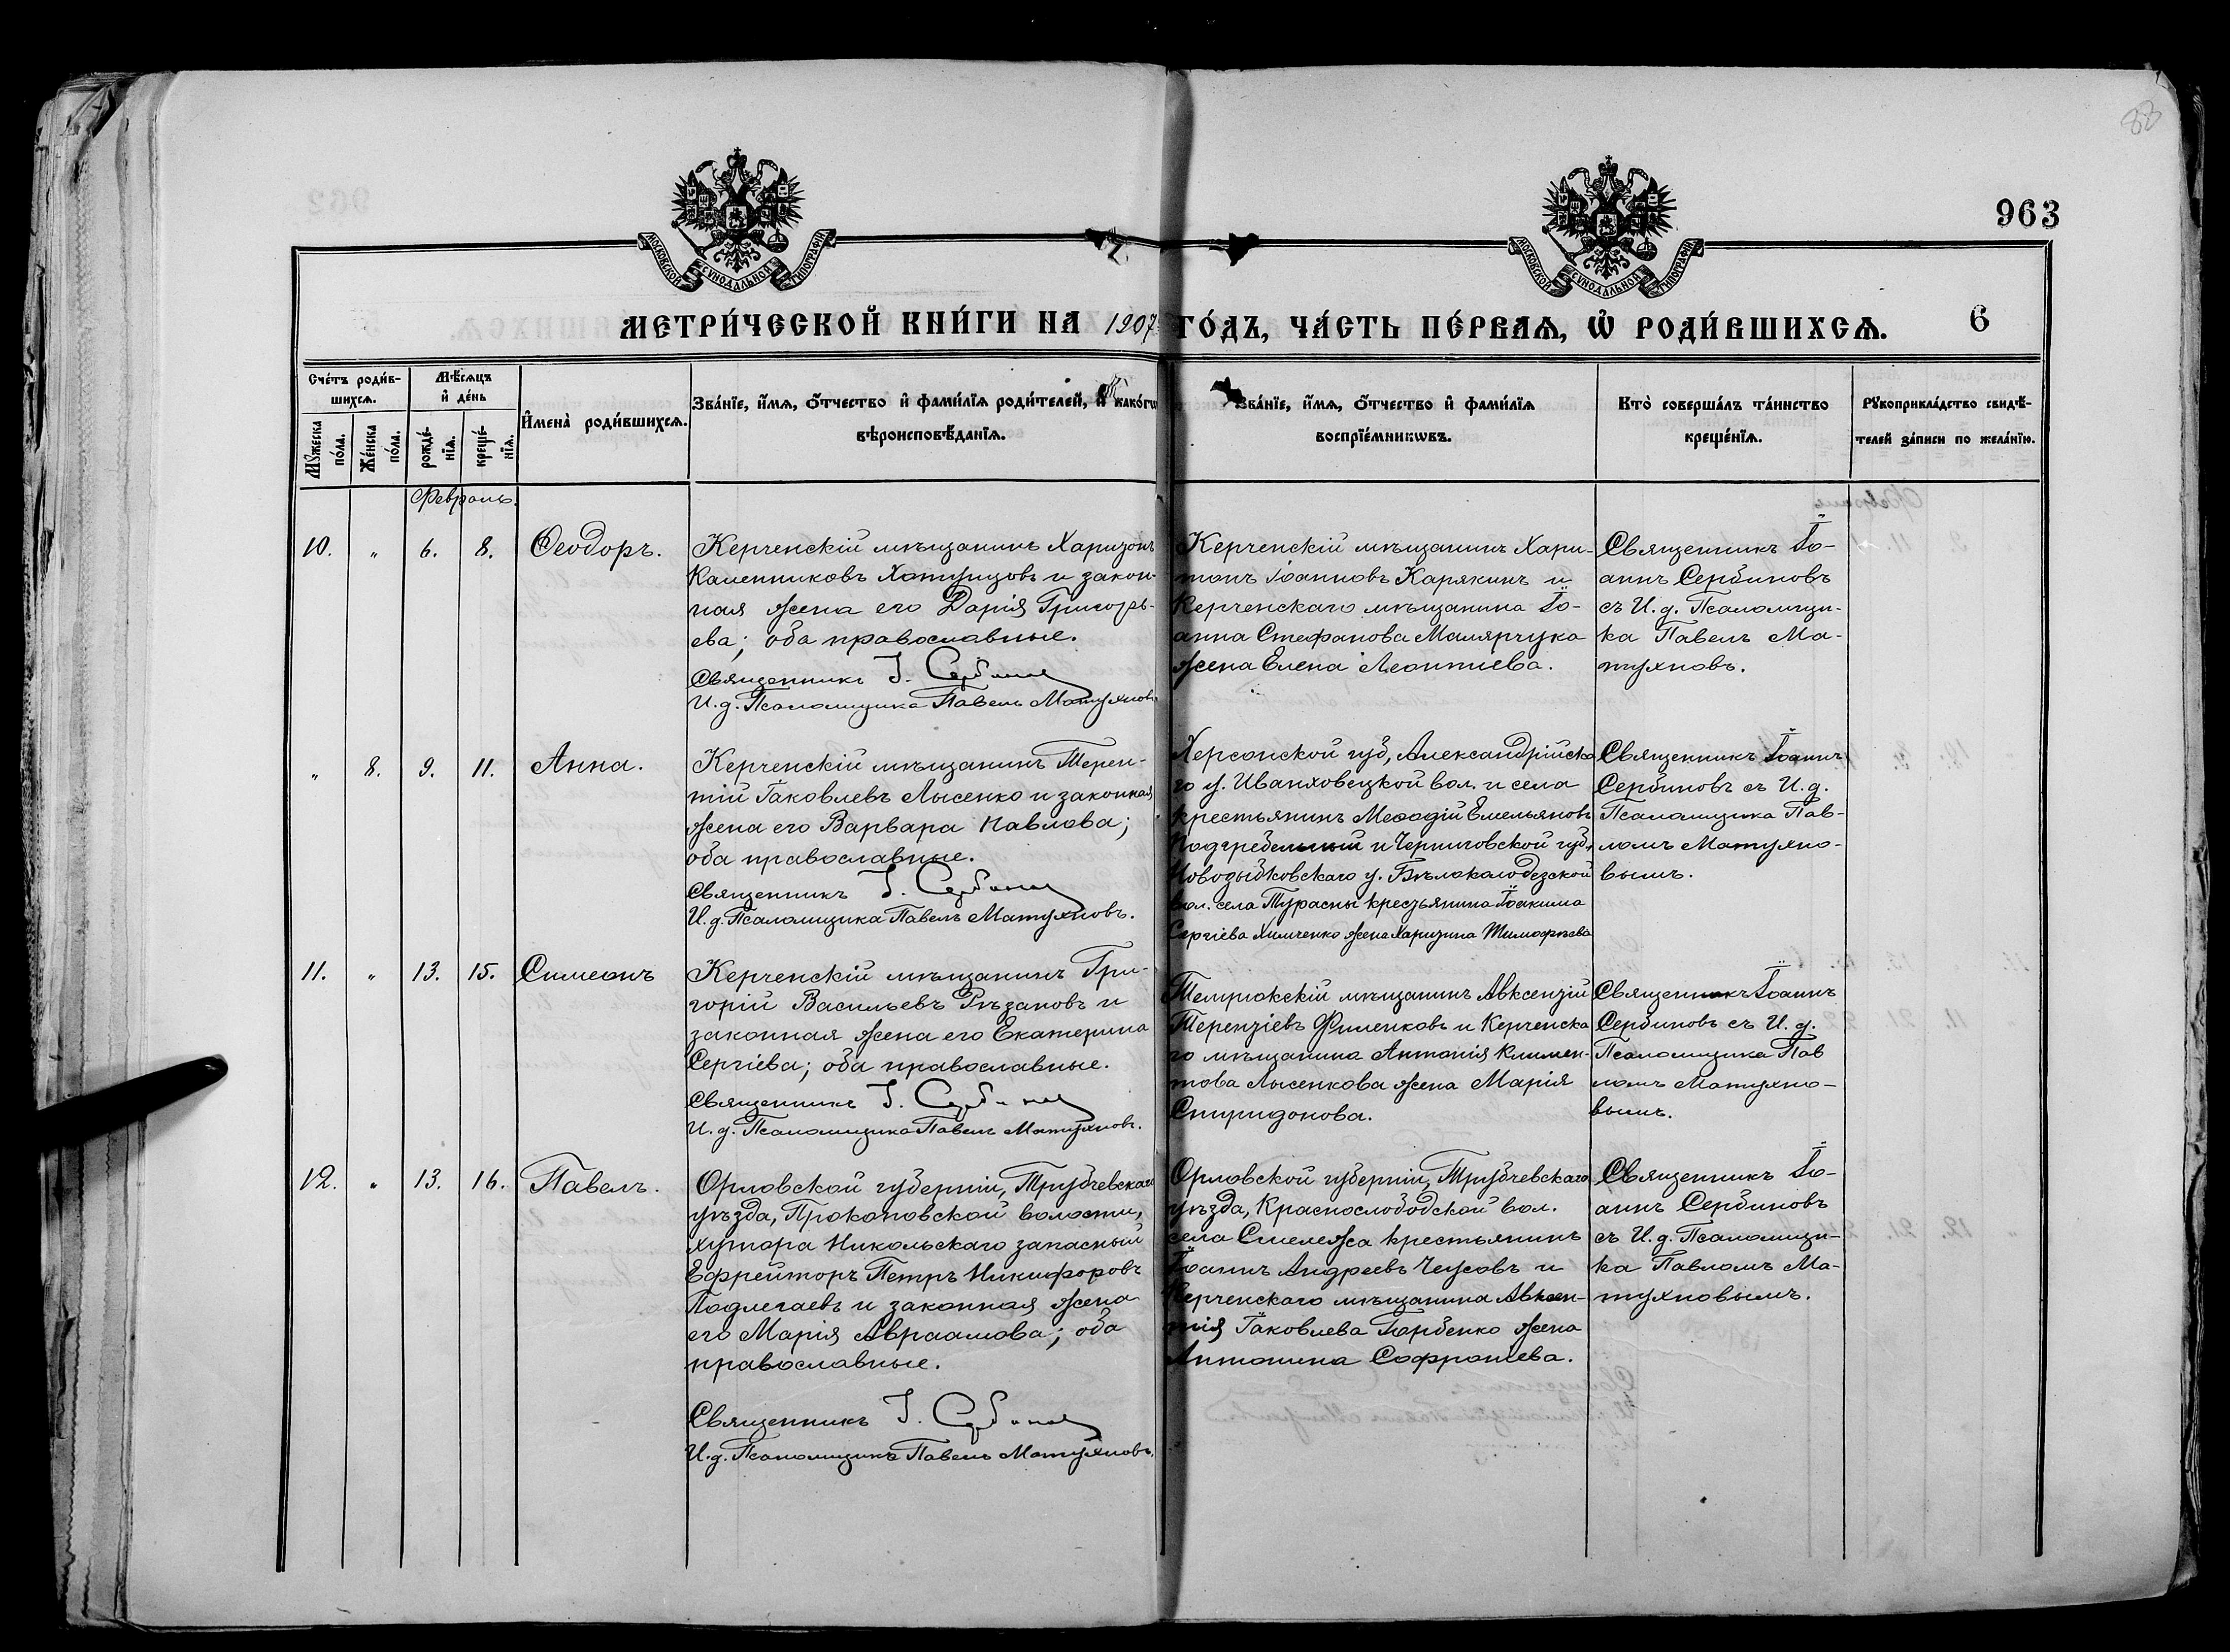 88
963
МОСКОВСКОЙ СѴНОДАЛЬНОЙ ТИПОГРАФІИ
МОСКОВСКОЙ СѴНОДАЛЬНОЙ ТИПОГРАФІИ
МЕТРИ́ЧЕСКОЙ КНИ́ГИ НА 1907 ГО́ДЪ, ЧА́СТЬ ПЕ́РВАѦ, Ѿ РОДИ́ВШИХСѦ. 6
Сче́тъ роди́в-
шихсѧ.
Мꙋ́жеска по́ла.
Же́нска по́ла.
Мѣ́сѧцъ
и҆ де́нь
рожде́-
нїѧ.
креще́-
нїѧ.
И҆мена̀ роди́вшихсѧ.
Зва́нїе, и҆́мѧ, ѻ҆́тчество и҆ фами́лїѧ роди́телей, и҆ како́гѡ
вѣроисповѣ́данїѧ.
Зва́нїе, и҆́мѧ, ѻ҆́тчество и҆ фами́лїѧ
воспрїе́мникѡвъ.
Кто̀ соверша́лъ та́инство
креще́нїѧ.
Рꙋкоприкла́дство свидѣ́-
телей за́писи по жела́нїю.
Февраль.
10. " 6. 8. Ѳеодоръ.
Керченскій мѣщанинъ Харизонъ
Каменниковъ и закон-
ная жена его Дарія Григорь-
ева; оба православные.
Священникъ І. Сербиновъ
И. д. Псаломщика Павелъ Матухновъ
Керченскій мѣщанинъ Хари-
тонъ Іоанновъ Карякинъ и
Керченскаго мѣщанина Іо-
анна Стефанова Малярчука
жена Елена Леонтіева.
Священникъ Іо-
аннъ Сербиновъ
съ И. д. Псаломщи-
ка Павелъ Ма-
тухновъ.
" 8. 9. 11. Анна.
Керченскій мѣщанинъ Терен-
тій Іаковлевъ Лысенко и законная
жена его Варвара Павлова;
оба православные.
Священникъ І. Сербиновъ
И. д. Псаломщика Павелъ Матухновъ.
Херсонской губ, Александрійска
го у. Иванховецкой вол. и села
крестьянинъ Меѳодій Емельяновъ
и Черниговской губ.,
Новозыбковскаго у. Бѣлоколодезской
вол. села Турасны крестьянина Іоакима
Сергіева Химченко жена Харитина Тимоѳеева
Священникъ Іоаннъ
Сербиновъ съ И. д.
Псаломщика Пав-
ломъ Матухно-
вымъ.
11. " 13. 15. Симеонъ
Керченскій мѣщанинъ Гри-
горій Васильевъ Рѣзановъ и
законная жена его Екатерина
Сергіева; оба православные.
Священникъ І. Сербиновъ
И. д. Псаломщика Павелъ Матухновъ.
Темрюкскій мѣщанинъ Авксентій
Терентіевъ Филенковъ и Керченска
го мѣщанина Антонія Климен-
това Лысенкова жена Марія
Спиридонова.
Священникъ Іоаннъ
Сербиновъ съ И. д.
Псаломщика Пав
ломъ Матухно-
вымъ.
12. " 13. 16. Павелъ.
Орловской губерніи, Трубчевскаго
уѣзда, Прокоповской волости,
хутора Никольскаго запасный
Ефрейторъ Петръ Никифоровъ
Подлегаевъ и законная жена
его Марія Авраамова; оба
православные.
Священникъ І. Сербиновъ
И. д. Псаломщика Павелъ Матухновъ.
Орловской губерніи, Трубчевскаго
уѣзда, Краснослободской вол.
села Смележа крестьянинъ
Іоаннъ Андреевъ Чеусовъ и
Керченскаго мѣщанина Авксен-
тія Іаковлева Горбенко жена
Антонина Софроніева.
Священникъ Іо-
аннъ Сербиновъ
съ И. д. Псаломщи-
ка Павломъ Ма-
тухновымъ.